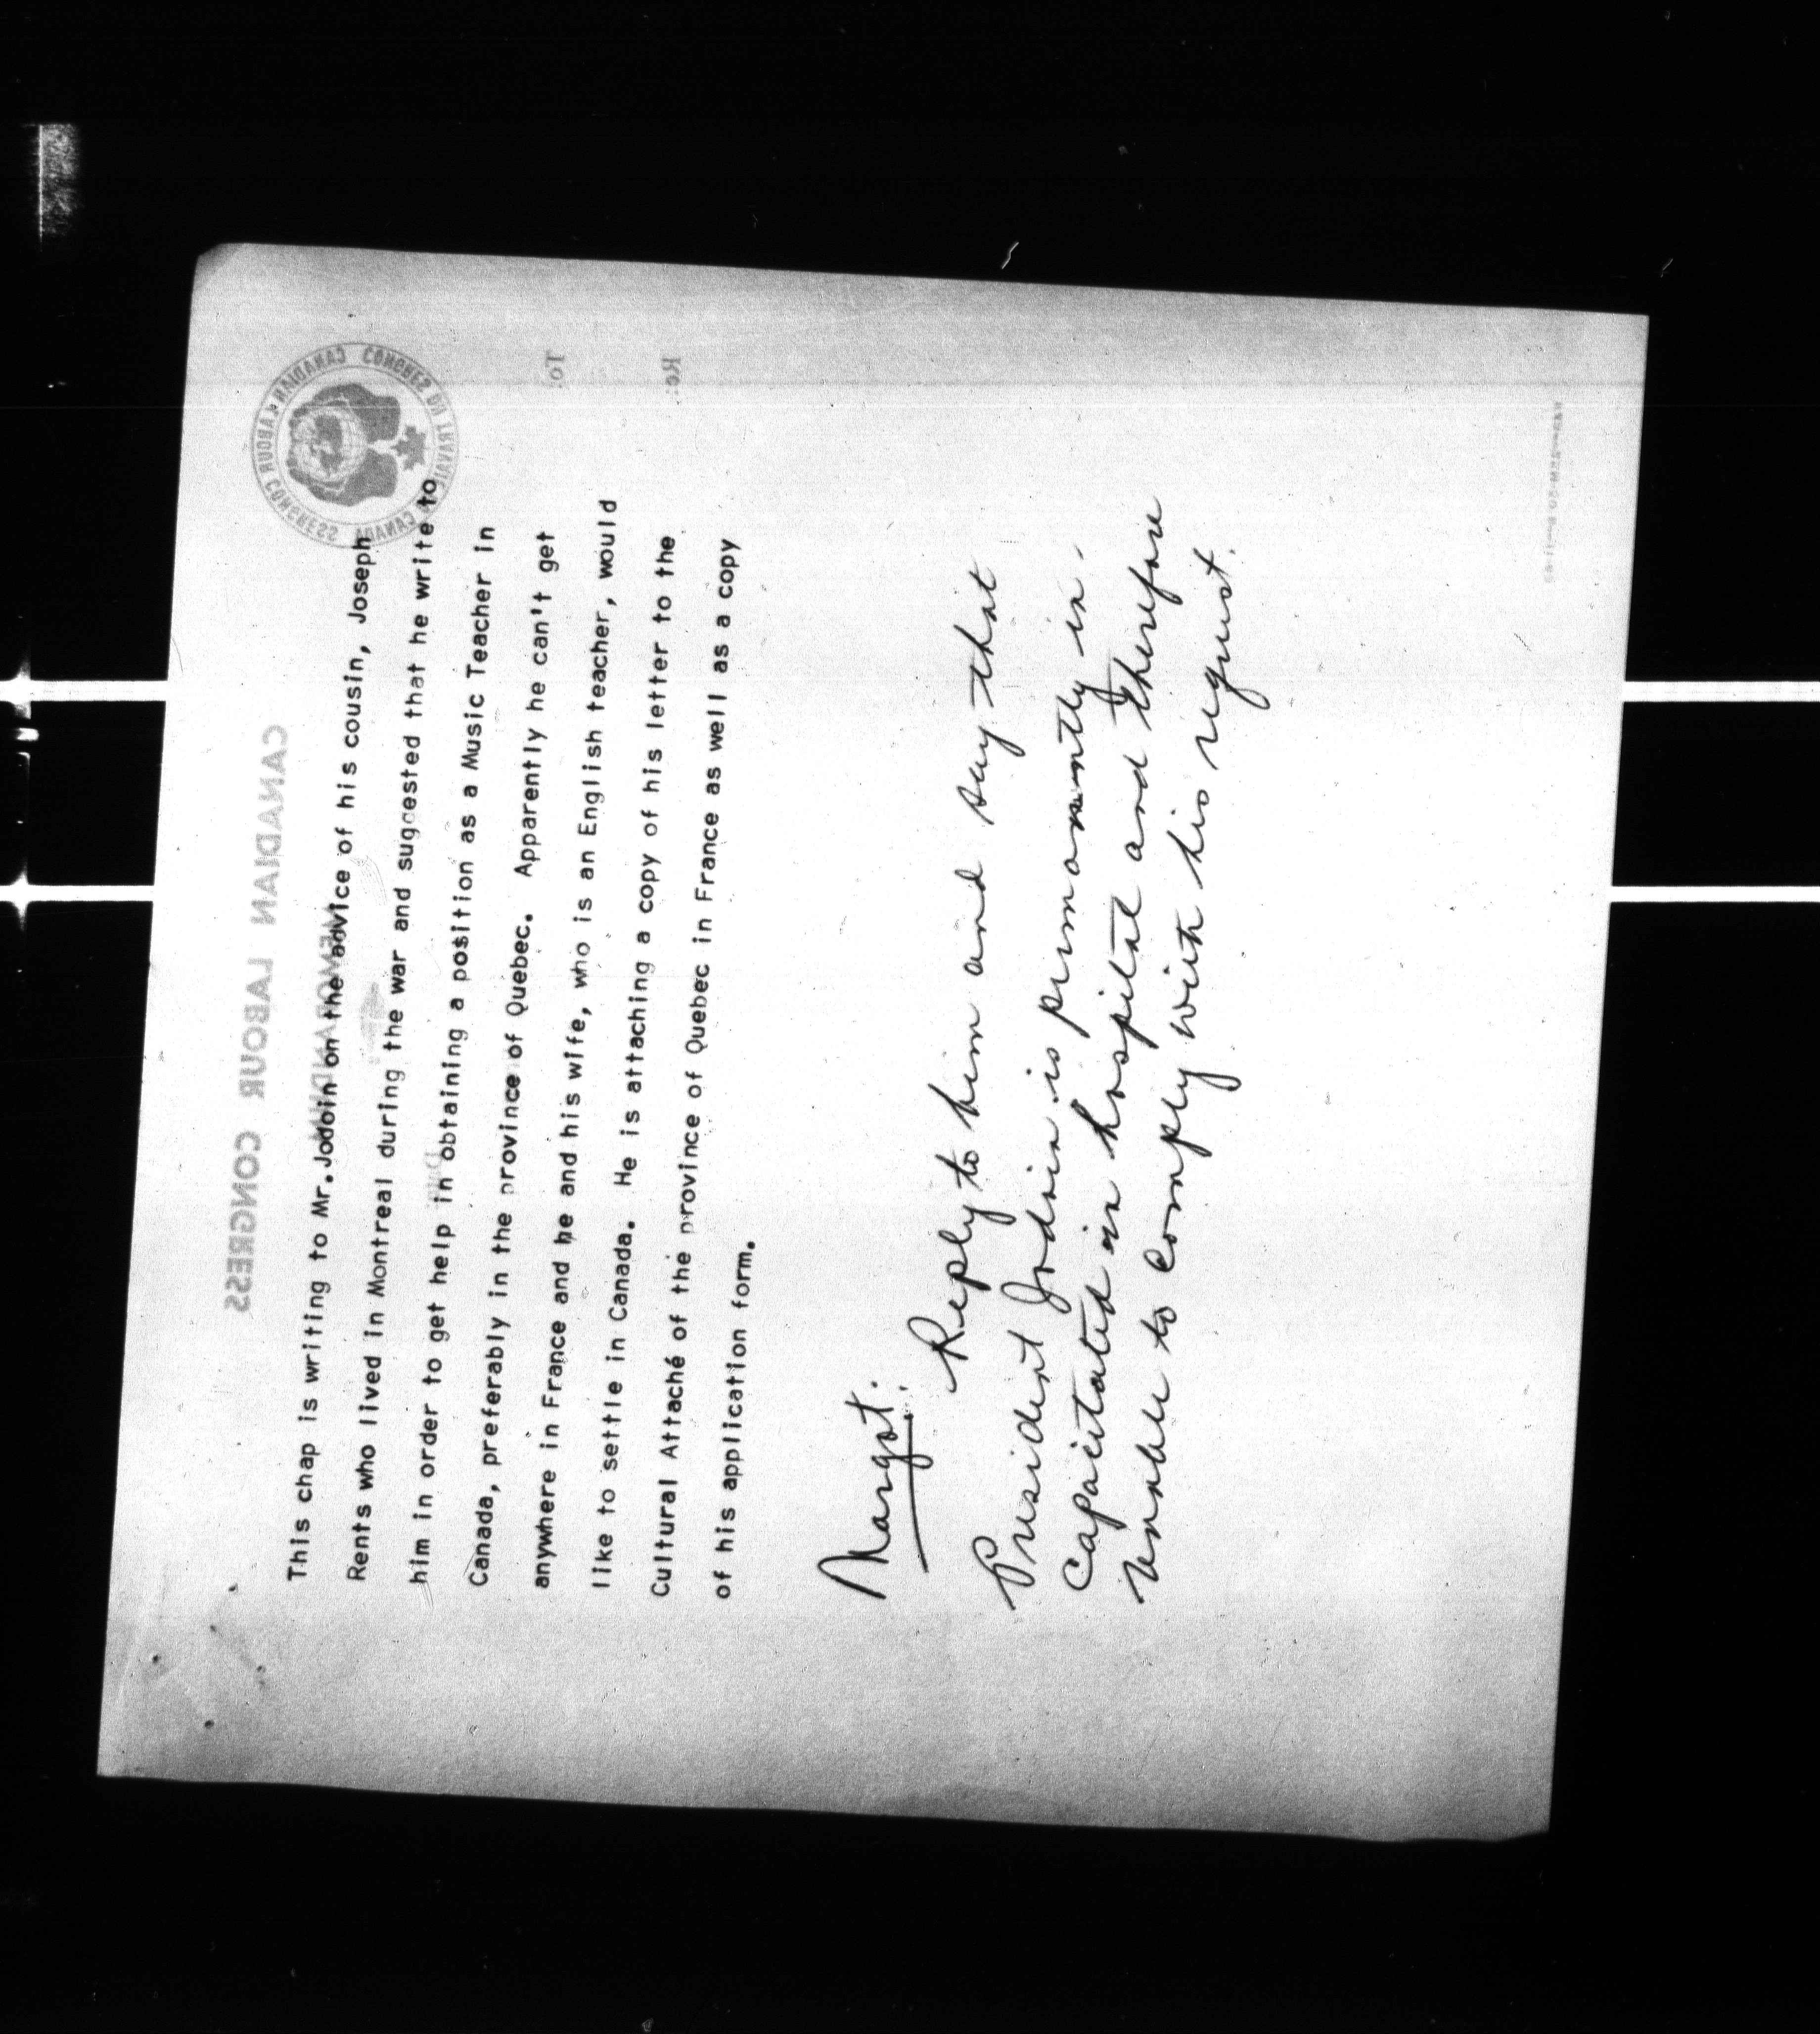 This chap is writing to Mr.Jodoin on the advice of his cousin, Joseph
Rents who lived in Montreal during the war and suggested that he write to
him in order to get help in obtaining a position as a Music Teacher in
Canada, preferably in the province of Quebec. Apparently he can't get
anywhere in France and he and his wife, who is an English teacher, would
like to settle in Canada. He is attaching a copy of his letter to the
Cultural Attaché of the province of Quebec in France as well as a copy
of his application form.
Margot:
Reply to him and say that
President Jodoin is permanently in-
capacitated in hospital and therefore
unable to comply with his request.
CANADIAN LABOUR CONGRESS
MEMORANDUM
CANADIAN LABOUR CONGRESS
CONGRES DU TRAVAIL CANADA
To:
Re: